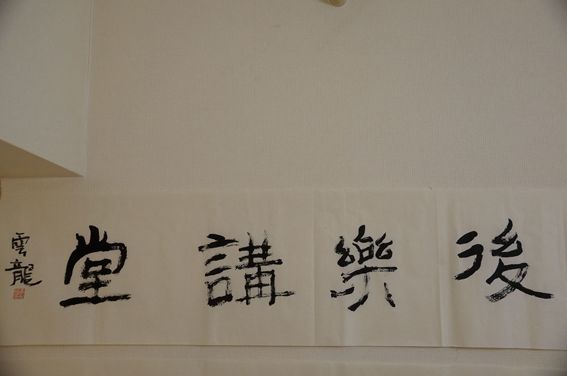 後樂講堂
雲龍